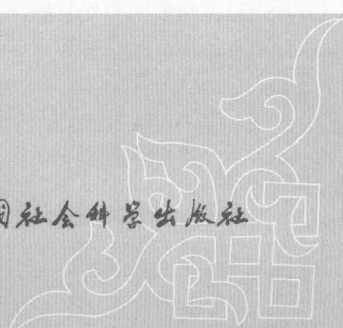 国社会科学出版社